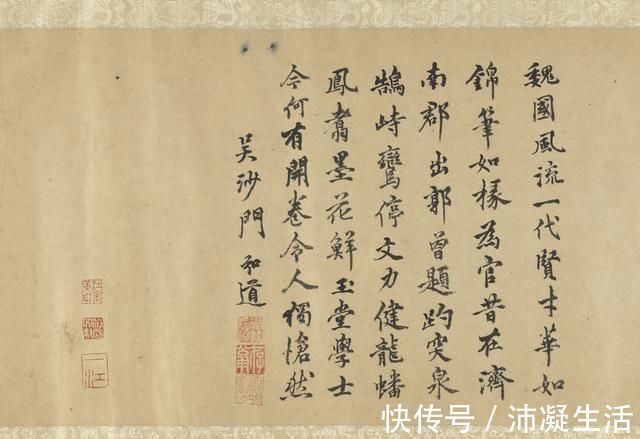 魏國風流一代賢才華如
錦筆如椽為官昔在濟
南郡出郭曾題趵突泉
鵠峙鸞停文力健龍蟠
鳳翥墨花鮮玉堂學士
今何有開卷令人獨愴然
吳沙門弘道
快传号 / 沛凝生活